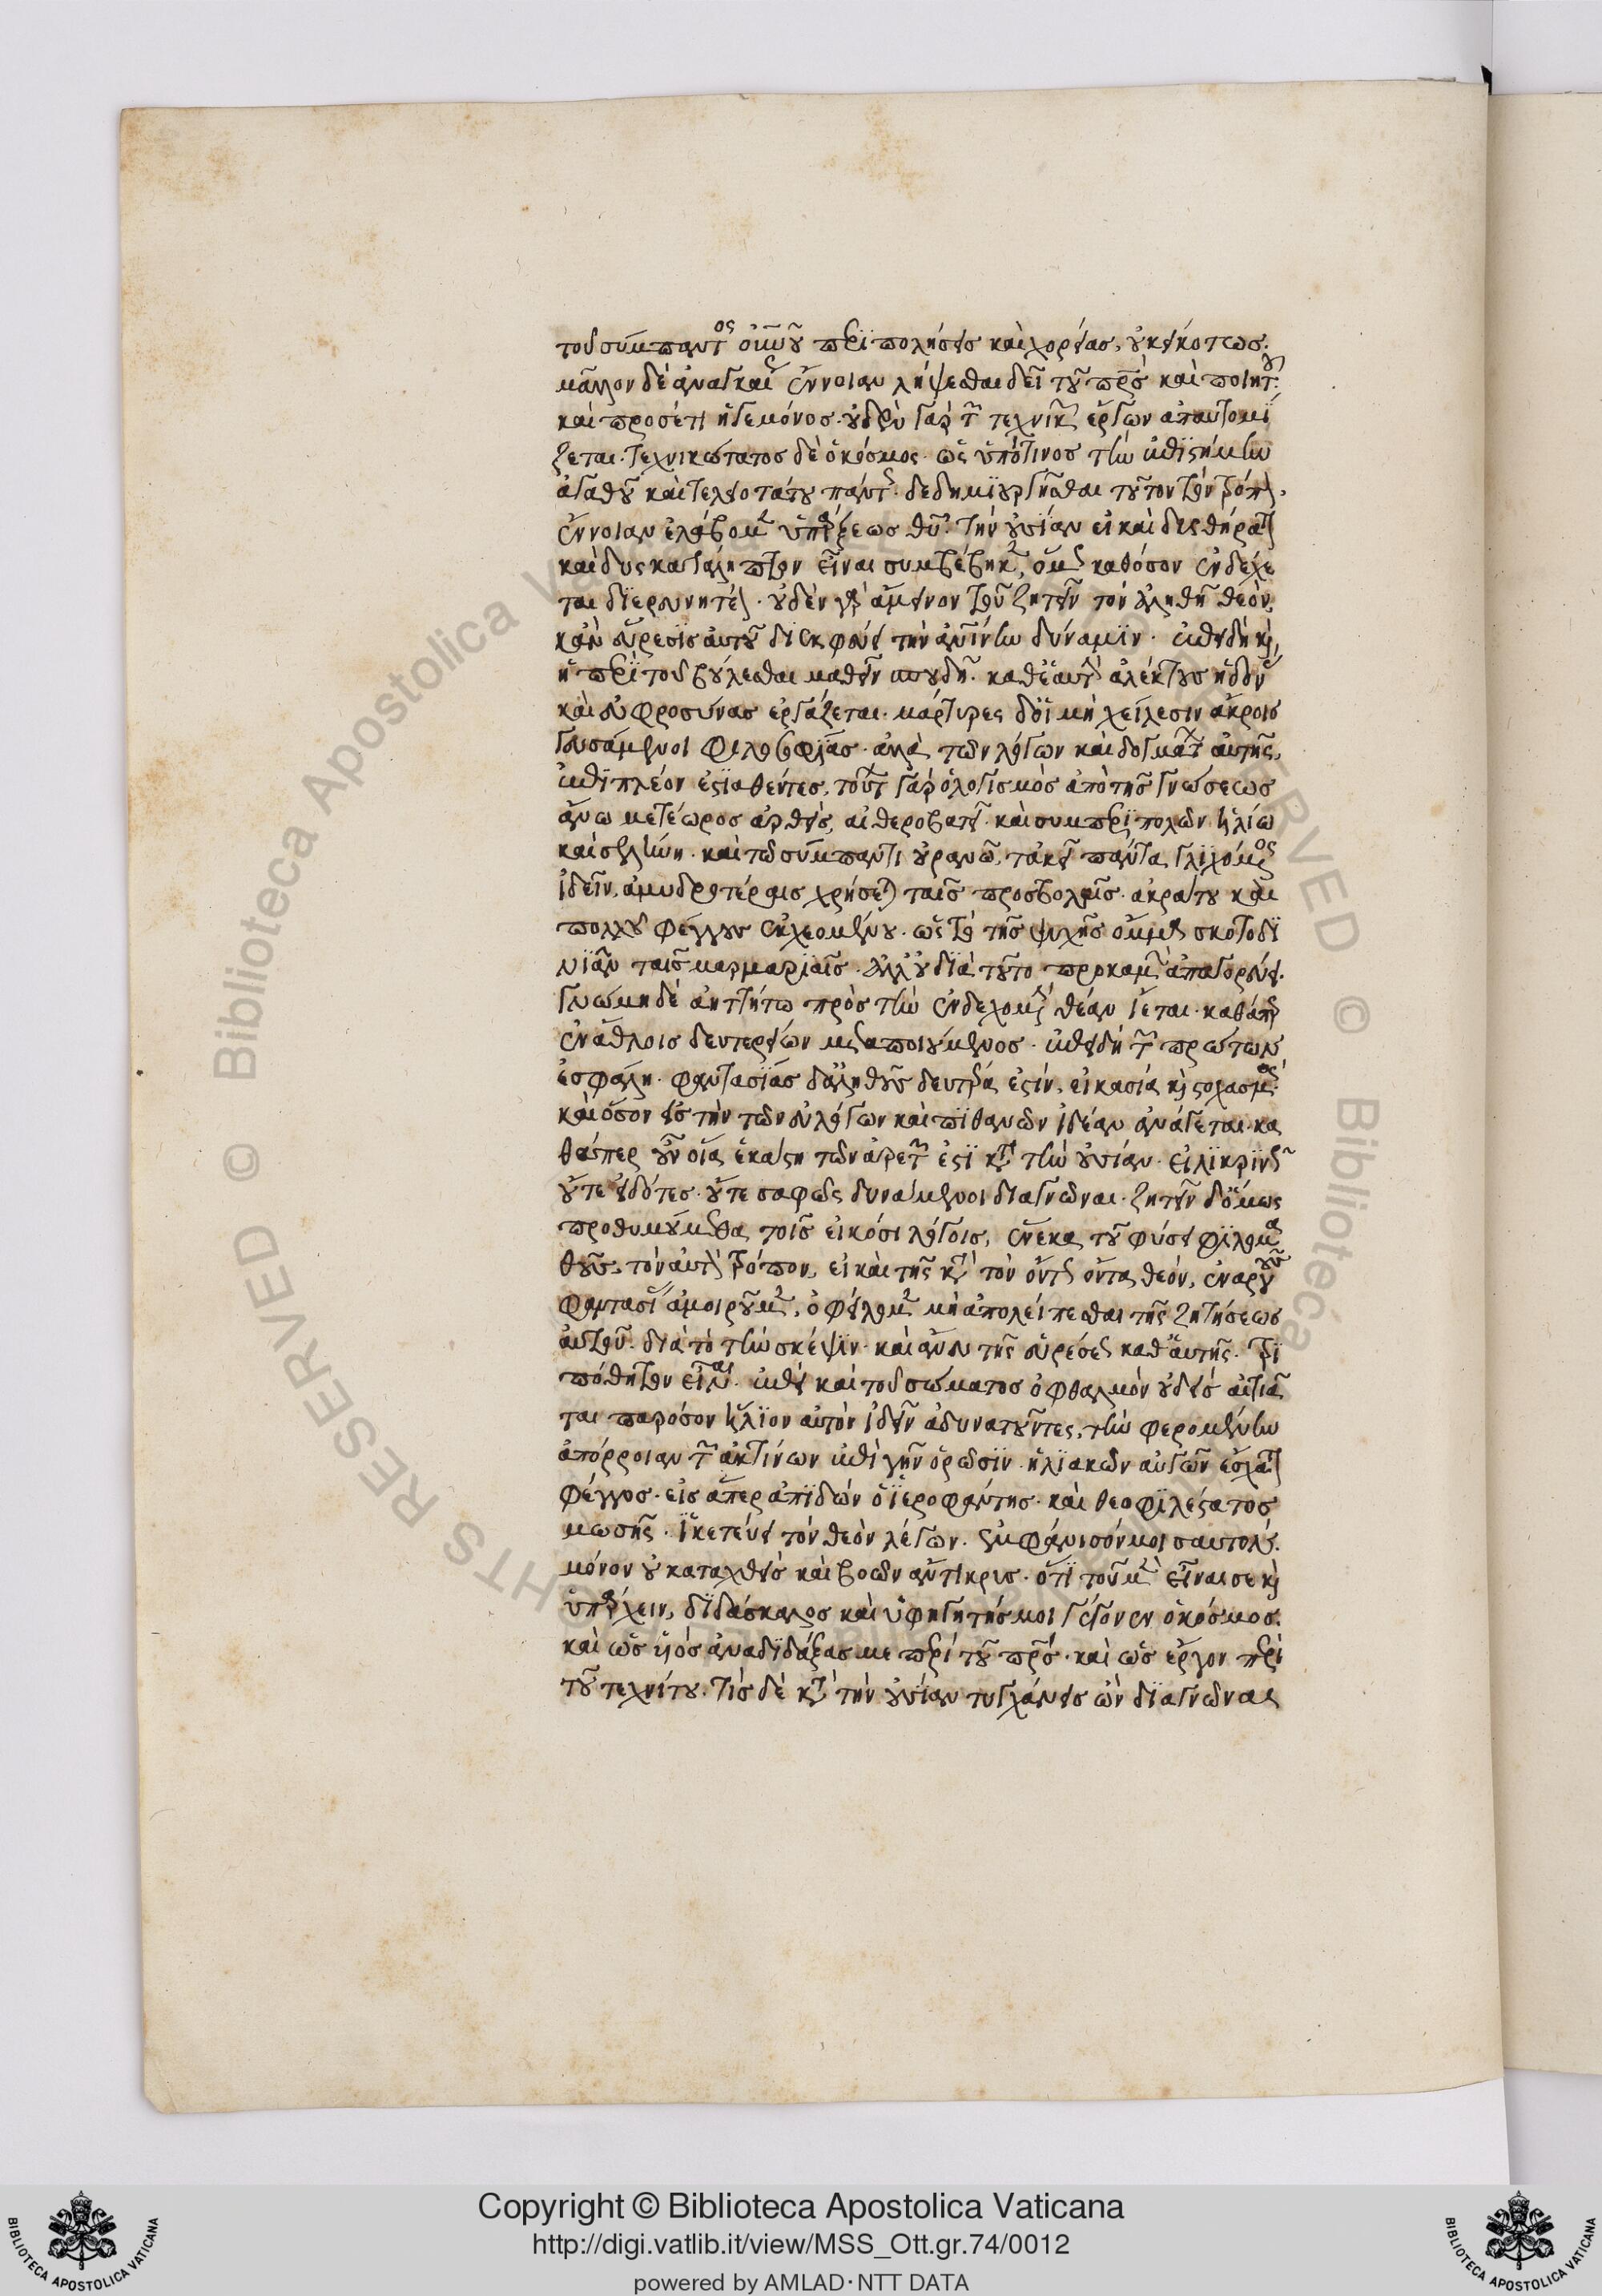 τοῦ σύμπαντος οὐρανοῦ περιπολήσεις καὶ χορείας, οὐκ εἰκότως.
μᾶλλον δὲ ἀναγκαίως ἔννοιαν λήψεσθαι δεῖ τοῦ πατρὸς καὶ ποιητοῦ.
καὶ προσέτι ἡγεμόνος. οὐδὲν γὰρ τῶν τεχνικῶν ἔργων ἀπαυτομα
ζεται. τεχνικώτατος δὲ ὁ κόσμος. ὡς ὑπό τινος τὴν ἐπιστήμην
ἀγαθοῦ καὶ τελειοτάτου πάντως δεδημιουργῆσθαι. τοῦτον τὸν τρόπον
ἔννοιαν ἐλάβομεν ὑπάρξεως θεοῦ. τὴν οὐσίαν εἰ καὶ δυσθήρατον
καὶ δυσκατάληπτον εἶναι συμβέβηκεν, ὅμως καθόσον ἐνδέχε
ται διερευνητέον. οὐδὲν γὰρ ἄμεινον τοῦ ζητεῖν τὸν ἀληθῆ θεὸν,
κἂν εὕρεσις αὐτοῦ διεκφύγῃ τὴν ἀνθρωπίνην δύναμιν. ἐπειδὴ καὶ
ἡ περὶ τοῦ βούλεσθαι μαθεῖν σπουδὴ. καθ' ἑαυτὴν ἀλέκτους ἡδονὰς
καὶ εὐφροσύνας ἐργάζεται. μάρτυρες δ' οἱ μὴ χείλεσιν ἄκροις
γευσάμενοι φιλοσοφίας. ἀλλὰ τῶν λόγων καὶ δογμάτων αὐτῆς,
ἐπὶ πλέον ἑστιαθέντες. τούτων γὰρ ὁ λογισμὸς ἀπὸ τῆς γνώσεως
ἄνω μετέωρος ἀρθεὶς, αἰθεροβατεῖ. καὶ συμπεριπολῶν ἡλίῳ
καὶ σελήνῃ. καὶ τῷ σύμπαντι οὐρανῷ, τἀκεῖ πάντα γλιχόμενος
ἰδεῖν, ἀμυδροτέραις χρῆται ταῖς προσβολαῖς. ἀκράτου καὶ
πολλοῦ φέγγους ἐκχεομένου. ὡς τὸ τῆς ψυχῆς ὄμμα σκοτοδι
νιᾶν ταῖς μαρμαρυγαῖς. ἀλλ' οὐ διὰ τοῦτο προκαμὼν ἀπαγορεύει.
γνώμῃ δὲ ἀηττήτῳ πρὸς τὴν ἐνδεχομένην θέαν ἵεται. καθάπερ
ἐν ἄθλοις δευτερείων μεταποιούμενος. ἐπειδὴ τῶν πρώτων
ἐσφάλη. φαντασίας δ' ἀληθοῦς δευτέρα ἐστὶν, εἰκασία καὶ στοχασμὸς.
καὶ ὅσον εἰς τὴν τῶν εὐλόγων καὶ πιθανῶν ἰδέαν ἀνάγεται. κα
θάπερ οὖν οἵα ἑκάστη τῶν ἀρετῶν ἐστι κατὰ τὴν οὐσίαν. εἰλικρινῶς
οὔτε εἰδότες. οὔτε σαφῶς δυνάμενοι διαγνῶναι. ζητεῖν δ' ὅμως
προθυμούμεθα τοῖς εἰκόσι λόγοις, ἕνεκα τοῦ φύσει φιλομα
θοῦς, τὸν αὐτὸν τρόπον, εἰ καὶ τῆς κατὰ τὸν ὄντως ὄντα θεὸν, ἐναργοῦς
φαντασίας ἀμοιροῦμεν, ὀφείλομεν μὴ ἀπολείπεσθαι τῆς ζητήσεως
αὐτοῦ. διὰ τὸ τὴν σκέψιν. καὶ ἄνευ τῆς εὑρέσεως καθ' αὑτὴν. τρι
πόθητον εἶναι. ἐπεὶ καὶ τοῦ σώματος ὀφθαλμὸν οὐδεὶς αἰτιᾶ
ται παρόσον ἥλιον αὐτὸν ἰδεῖν ἀδυνατοῦντες, τὴν φερομένην
ἀπόρροιαν τῶν ἀκτίνων ἐπὶ γῆν ὁρῶσιν. ἡλιακῶν αὐγῶν ἔσχατον
φέγγος. εἰς ἅπερ ἀπιδὼν ὁ ἱεροφάντης. καὶ θεοφιλέστατος
μωσῆς. ἱκετεύει τὸν θεὸν λέγων. ἐμφάνισόν μοι σαυτόν.
μόνον οὐ κατασχεθεὶς καὶ βοῶν ἄντικρυς. ὅτι τοῦ μὲν εἶναί σε καὶ
ὑπάρχειν, διδάσκαλος καὶ ὑφηγητής μοι γέγονεν ὁ κόσμος.
καὶ ὡς υἱὸς ἀναδιδάξας με περὶ τοῦ πατρός. καὶ ὡς ἔργον περὶ
τοῦ τεχνίτου. τίς δὲ κατὰ τὴν οὐσίαν τυγχάνεις ὢν διαγνῶναι
Copyright © Biblioteca Apostolica Vaticana
http://digi.vatlib.it/view/MSS_Ott.gr.74/0012
powered by AMLAD·NTT DATA